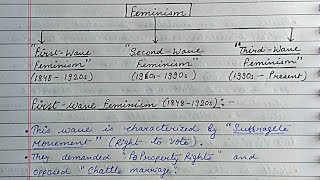 Feminism
"First-Wave "Second-Wave "Third-Wave
Feminism" Feminism" Feminism"
(1848-1920s) (1960s-1990s) (1990s - Present)
First-wave Feminism (1848-1920s):-
• This wave is characterized by "Suffragete
Movement" (Right to Vote).
• They demanded "PoProperty Rights" and
opposed "Chattle marriage.